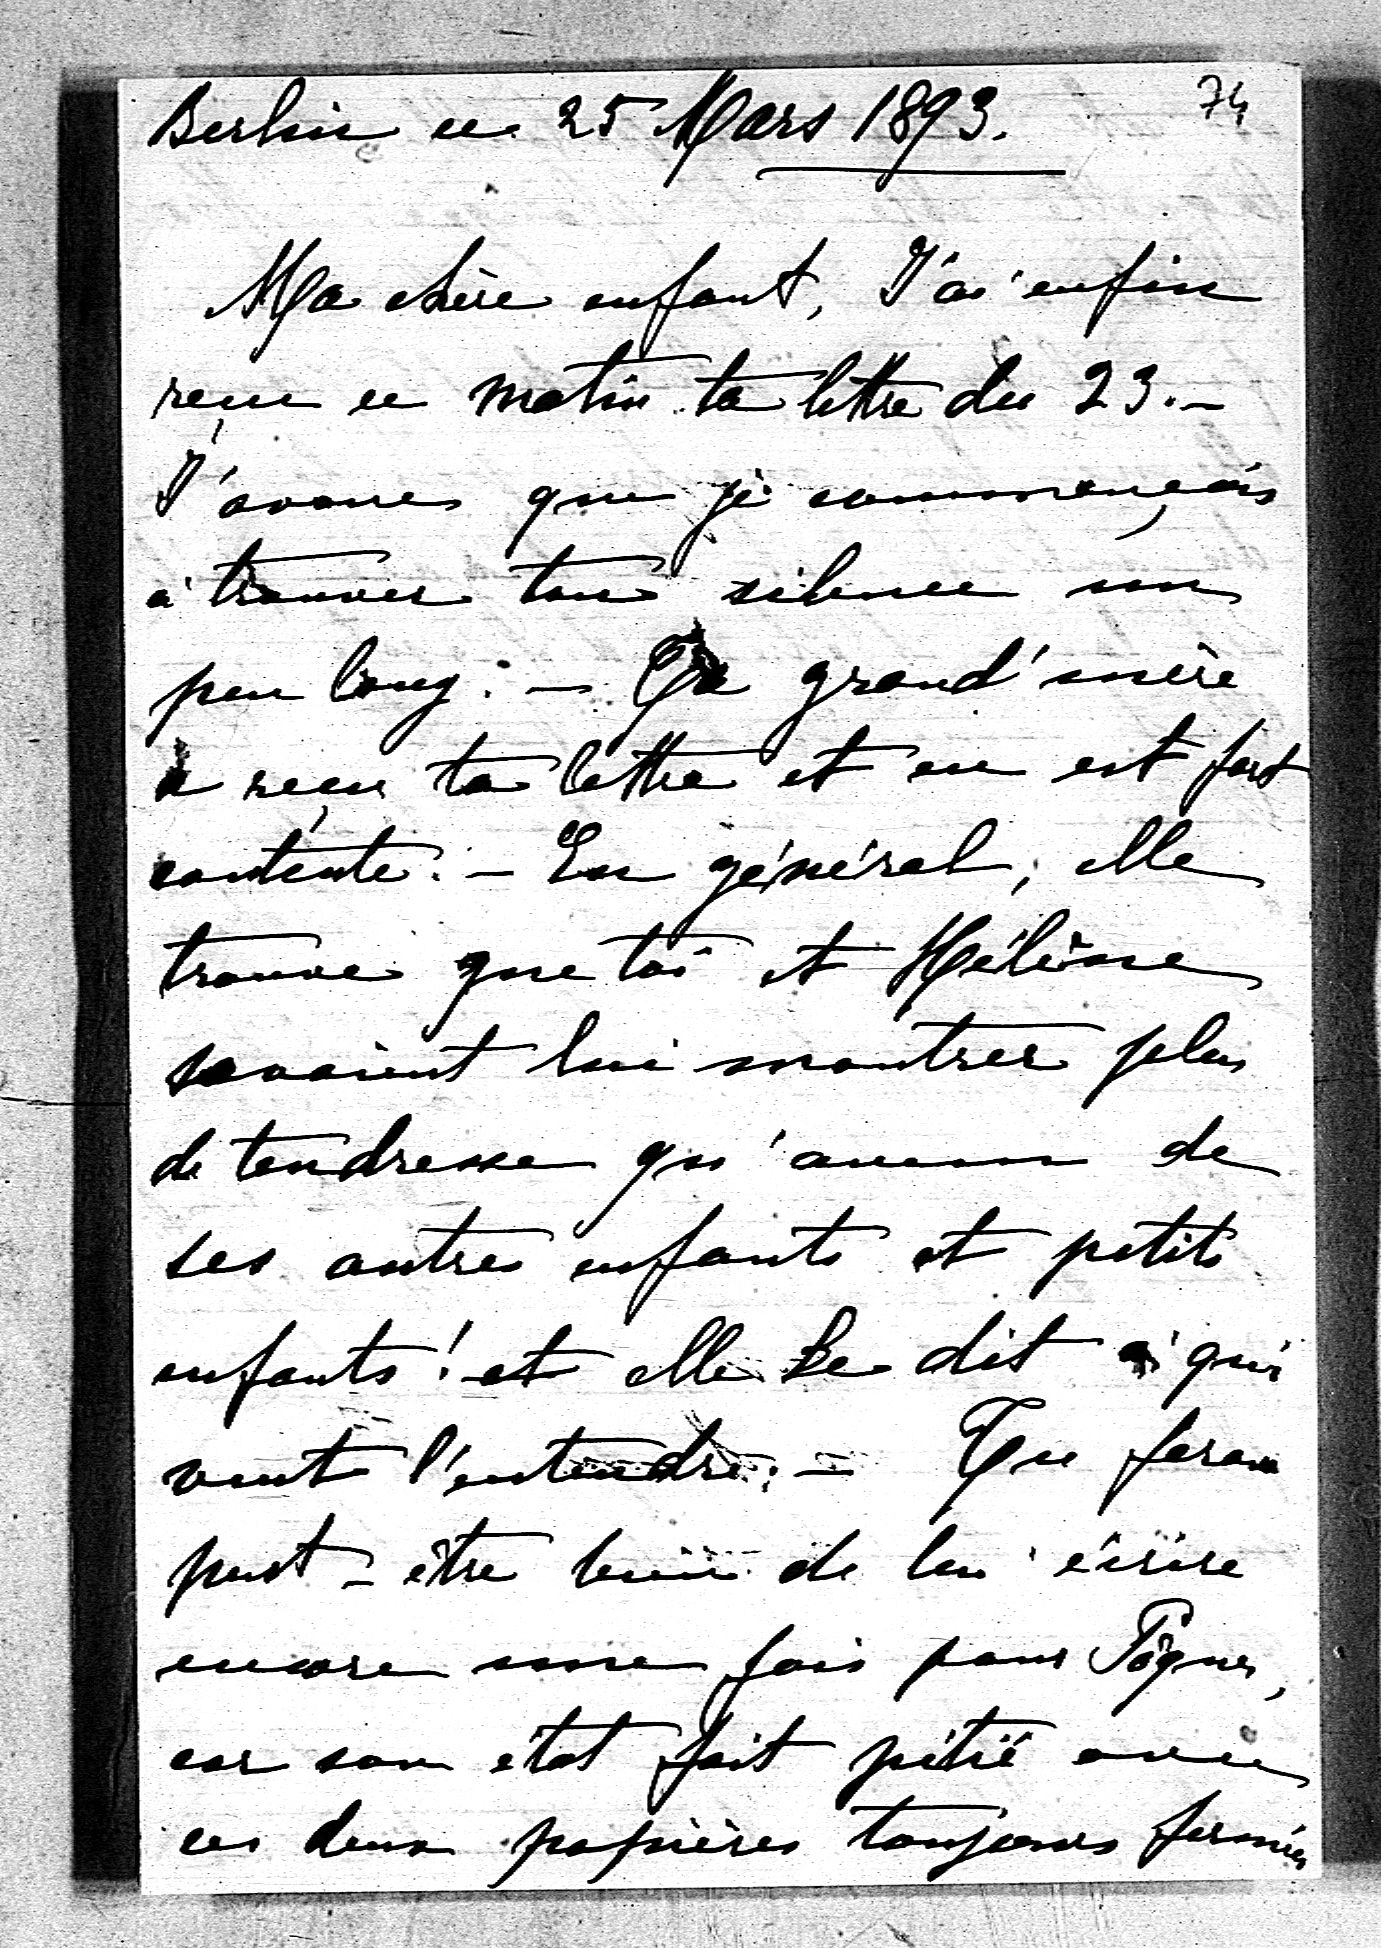 74
Berlin ce 25 Mars 1893.
Ma chère enfant, J'ai enfin
reçu ce matin ta lettre du 23. –
J'avoue que je commençais
à trouver ton silence un
peu long. – Ta grand'mère
a reçu ta lettre et en est fort
contente. – En général, elle
trouve que toi et Hélène
savaient lui montrer plus
de tendresse qu'aucun de
ses autres enfants et petits
enfants! et elle le dit à qui
veut l'entendre. – Tu feras
peut-être bien de lui écrire
encore une fois pour Pâques,
car son état fait pitié avec
ces deux papières toujours fermées